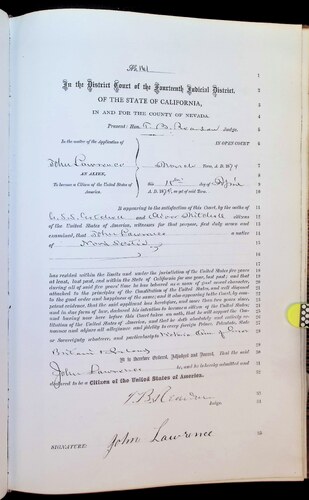 No 161
1
In the District Court of the Fourteenth Judicial District,
2
3
OF THE STATE OF CALIFORNIA,
4
IN AND FOR THE COUNTY OF NEVADA.
5
Present: Hon. T. B. Reardan Judge.
6
In the matter of the Application of
IN OPEN COURT
7
John Lawrence
Term, A. D. 1879
8
AN ALIEN,
9
To become a Citizen of the United States of America.
this day of April
A. D. 1879, as yet of said Term.
10
11
It appearing to the satisfaction of this Court, by the oaths of
12
and Mitchell citizens
13
of the United States of America, witnesses for that purpose, first duly sworn and
14
examined, that John Lawrence a native
15
of Nova Scotia
16
17
has resided within the limits and under the jurisdiction of the United States five years
at least, last past, and within the State of California for one year, last past; and that
during all of said five years' time he has behaved as a man of good moral character,
attached to the principles of the Constitution of the United States, and well disposed
to the good order and happiness of the same; and it also appearing to the Court, by competent evidence, that the said applicant has heretofore, and more than two years since,
and in due form of law, declared his intention to become a citizen of the United States;
and having now here before this Court taken an oath, that he will support the Constitution of the United States of America, and that he doth absolutely and entirely renounce and abjure all allegiance and fidelity to every foreign Prince, Potentate, State
or Sovereignty whatever, and particularly to Victoria Queen of Great
Britain & Ireland
It is therefore Ordered, Adjudged and Decreed, That the said
John Lawrence be, and he hereby admitted and
declared to be a Citizen of the United States of America.
T. B. Reardan
Judge.
SIGNATURE:
John Lawrence